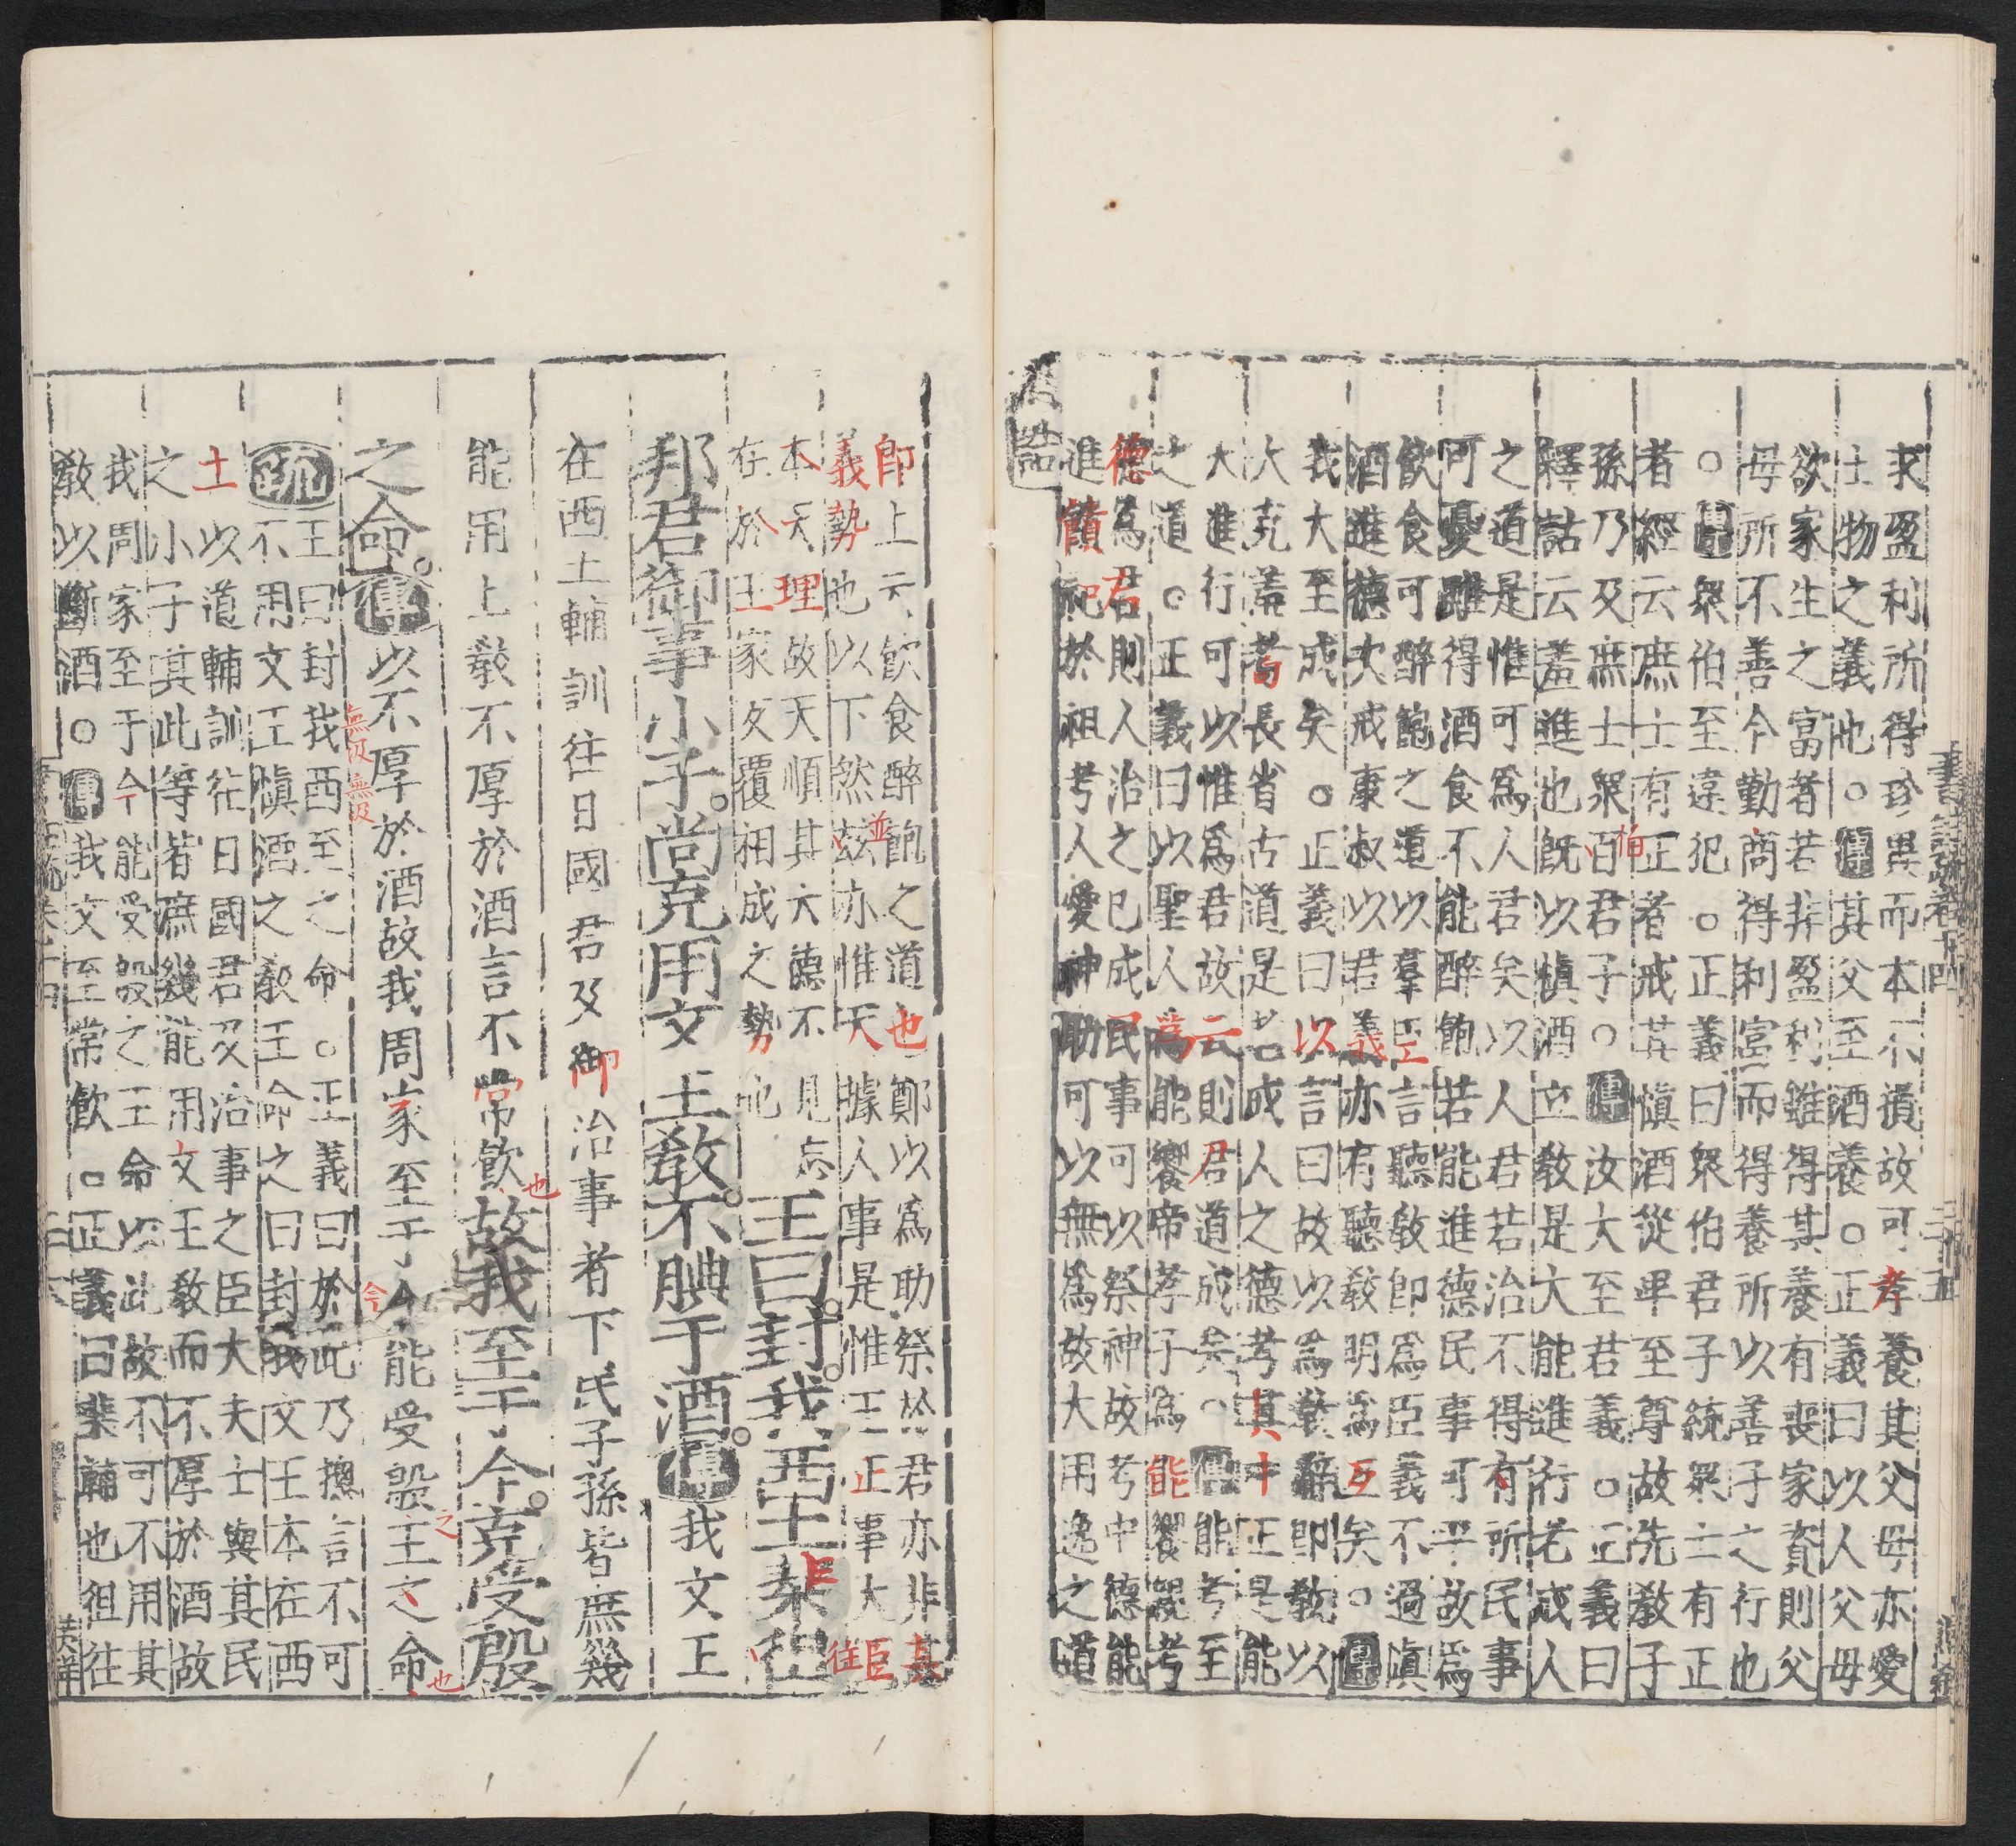 書註疏卷十四
二十五
求盈利所得珍異而本不損故可孝養其父母亦愛
土物之義也○傳其父至酒養○正義曰以人父母
欲家生之富者若非盈利雖得其養有喪家資則父
母所不善今勤商得利富而得養所以善子之行也
○傳衆伯至違犯○正義曰衆伯君子統衆士有正
者經云庶士有正者戒其慎酒從卑至尊故先敎子
孫乃及庶士衆百君子○傳汝大至君義○正義曰
伯
釋詁云羞進也旣以愼酒立敎是大能進行老成人
之道是惟可爲人君矣以人君若治不得有所民事
可憂雖得酒食不能醉飽若能進德民事可平故爲
飲食可醉飽之道以羣臣言聽敎即爲臣義不過愼
酒進德次戒康叔以君義亦有聽敎明爲互矣○傳
我大至成矣○正義曰以言曰故以爲敎辭即敎以
大克羞耇長省古道是老成人之德考其中正是能
大進行可以惟爲君故云則君道成矣○傳能考至
之道○正義曰以聖人爲能饗帝孝子爲能饗親考
德爲君則人治之已成民事可以祭神故考中德能
進饋祀於祖考人愛神助可以無爲故大用逸之道
酒誥
即上云飲食醉飽之道也鄭以爲助祭於君亦非其
義勢也以下然茲亦惟天據人事是惟王正事大臣
並
本天理故天順其大德不見忘
在於王家反覆相成之勢也
王曰封我西土棐徂
往
邦君御事小子尚克用文王敎不腆于酒傳我文王
在西土輔訓往日國君及御治事者下民子孫皆庶幾
能用上敎不厚於酒言不常飲故我至于今克受殷
也
之命傳以不厚於酒故我周家至于今能受殷王之命
無報無報
今
之
也
疏王曰封我西至之命○正義曰於此乃摠言不可
不用文王愼酒之敎王命之曰封我文王本在西
土以道輔訓往日國君及治事之臣大夫士與其民
之小子其此等皆庶幾能用文王敎而不厚於酒故
我周家至于今能受殷之王命以此故不可不用其
敎以斷酒○傳我文至常飲○正義曰棐輔也徂往